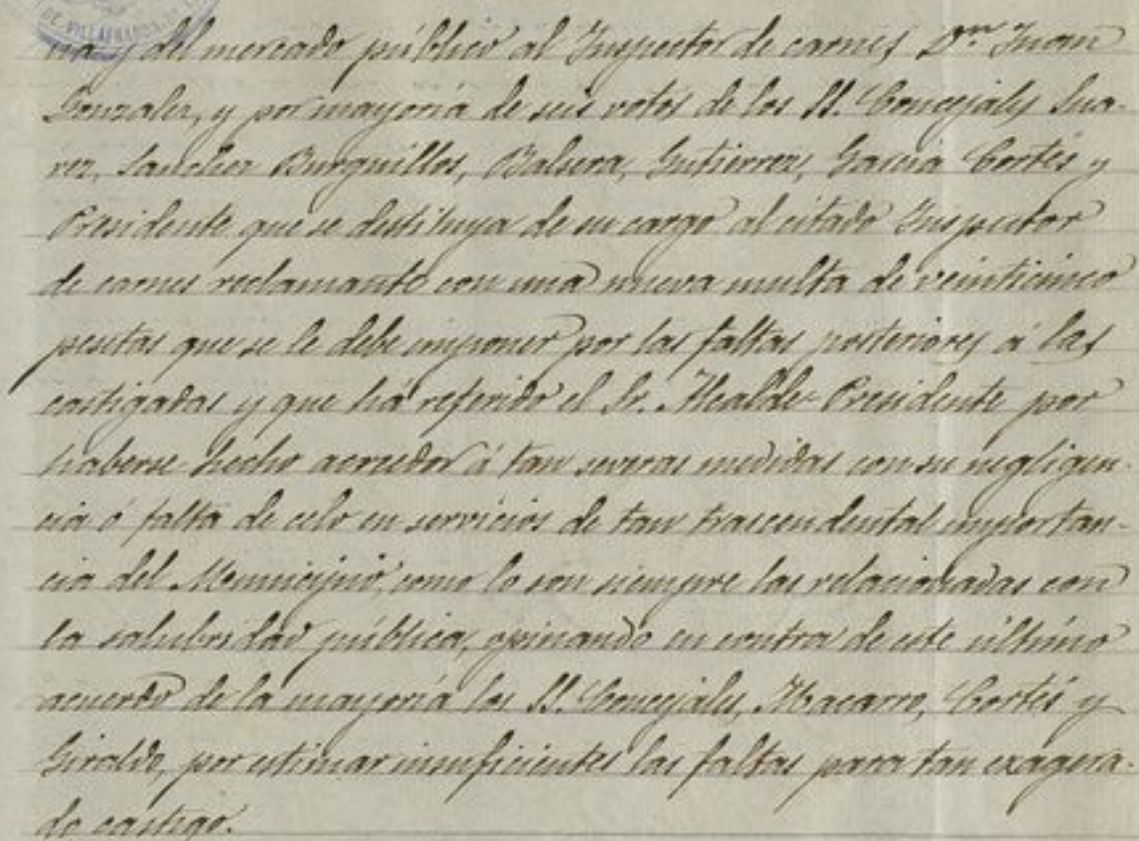 DE VILLAFRANCA
ria y del mercado público al Inspector de carnes Dⁿ Juan
Gonzalez, y por mayoría de seis votos de los SS. Concejales Sua-
rez, Sanchez Burguillos, Balsera, Gutierrez, Garcia Cortés y
Presidente que se destituya de su cargo al citado Inspector
de carnes reclamante con una nueva multa de veinticinco
pesetas que se le debe imponer por las faltas posteriores á las
castigadas y que há referido el Sr. Alcalde-Presidente por
haberse hecho acreedor á tan severas medidas con su negligen-
cia ó falta de celo en servicios de tan trascendental importan-
cia del Municipio, como lo son siempre las relacionadas con
la salubridad pública, opinando en contra de este último
acuerdo de la mayoría los SS. Concejales, Macarro, Cortés y
Giraldo, por estimar insuficientes las faltas para tan exagera-
do castigo.